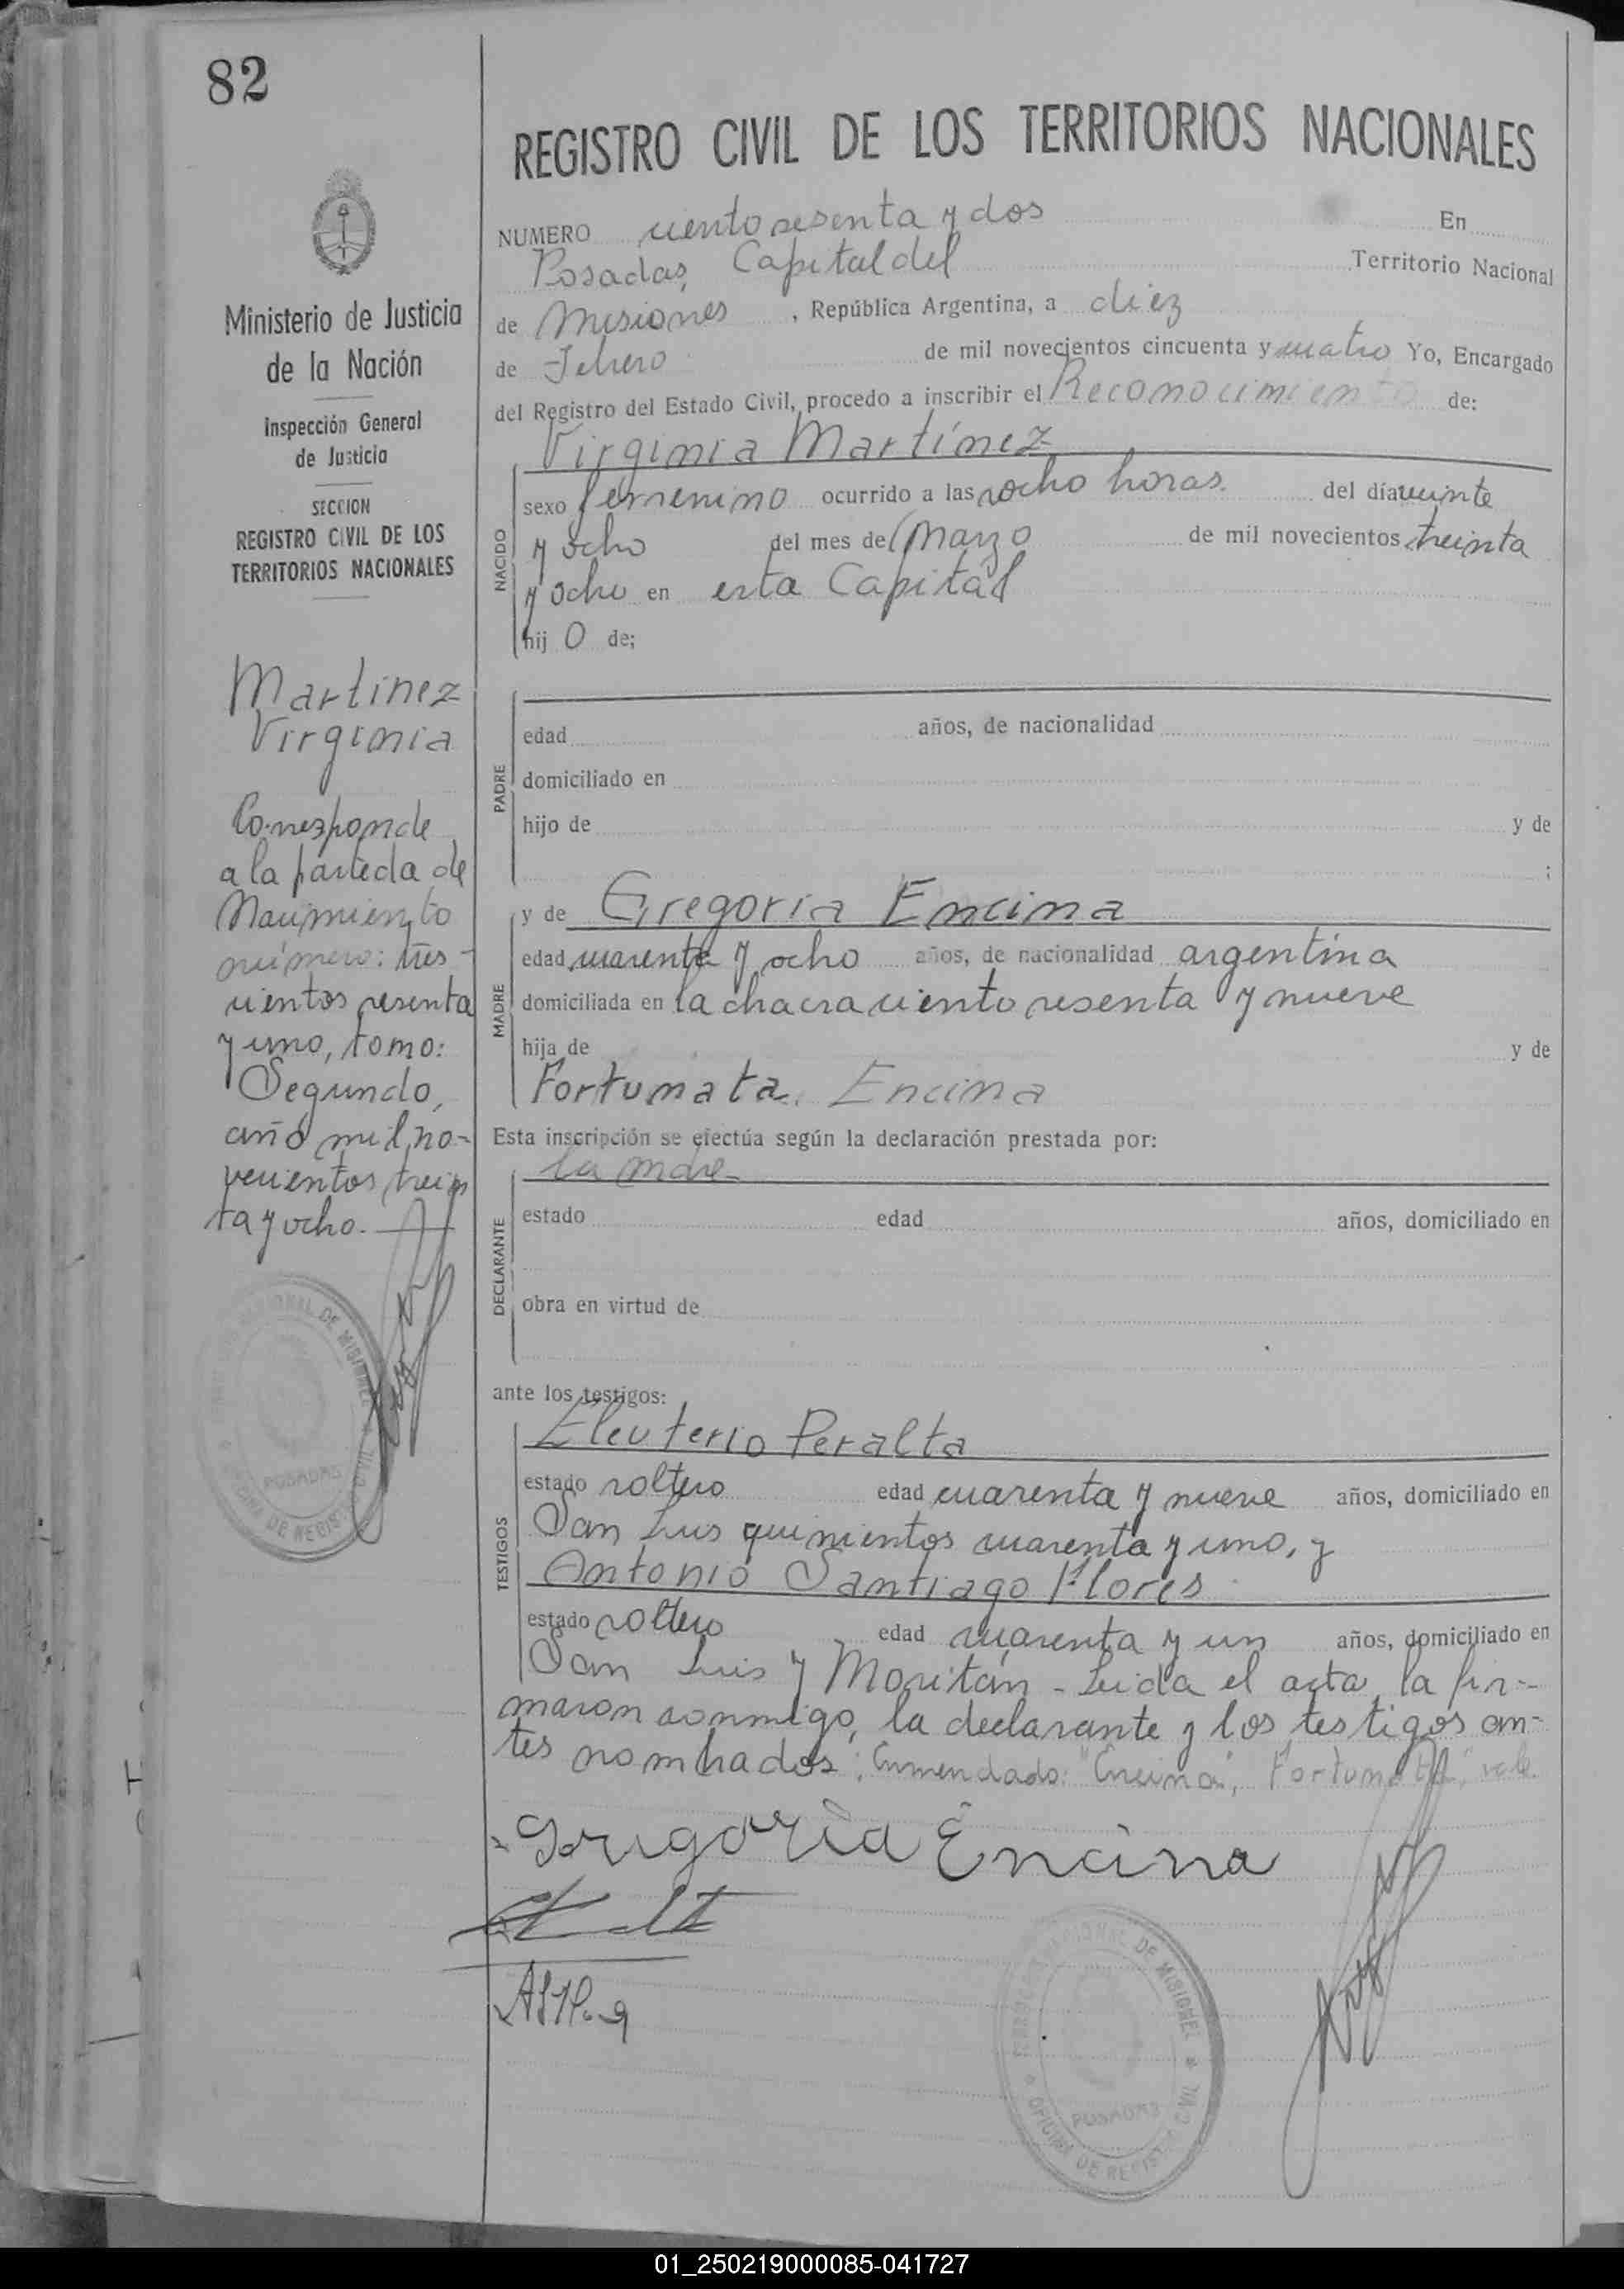 82
REGISTRO CIVIL DE LOS TERRITORIOS NACIONALES
NUMERO ciento sesenta y dos En
Posadas, Capital del Territorio Nacional
de Misiones, República Argentina, a diez
de Febrero de mil novecientos cincuenta y cuatro Yo, Encargado
del Registro del Estado Civil, procedo a inscribir el Reconocimiento de:
Virginia Martínez
NACIDO
sexo femenino ocurrido a las ocho horas. del día veinte
y ocho del mes de Marzo de mil novecientos treinta
y ocho en esta Capital
hij O de;
PADRE
edad años, de nacionalidad
domiciliado en
hijo de y de
;
MADRE
y de Gregoria Encina
edad cuarenta y ocho años, de nacionalidad argentina
domiciliada en la chacra ciento sesenta y nueve
hija de y de
Fortunata Encina
Esta inscripción se efectúa según la declaración prestada por:
la mdre
DECLARANTE
estado edad años, domiciliado en
obra en virtud de
ante los testigos:
TESTIGOS
Eleuterio Peralta
estado soltero edad cuarenta y nueve años, domiciliado en
San Luis quinientos cuarenta y uno, y
Antonio Santiago Flores
estado soltero edad cuarenta y un años, domiciliado en
San Luis y Moritán - Leida el acta la fir-
maron conmigo, la declarante y los testigos an-
tes nombrados: Enmendado: "Encina", Fortunata", vale.
Gregoria Encina
Ministerio de Justicia
de la Nación
Inspección General
de Justicia
SECCION
REGISTRO CIVIL DE LOS
TERRITORIOS NACIONALES
Martinez
Virginia
Corresponde
a la partida de
Nacimiento
número: tres-
cientos sesenta
y uno, tomo:
Segundo,
año mil no-
vecientos trein
ta y ocho.
NACIONAL DE MISIONES
OFICINA DE REGISTRO CIVIL
POSADAS
NACIONAL DE MISIONES
OFICINA DE REGISTRO CIVIL
POSADAS
01_250219000085-041727